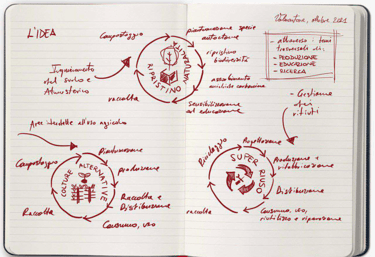 L'IDEA
Compostaggio
Inquinamento
del suolo e
Atmosferico
raccolta
RIPRISTINO
NATURALE
piantumazione specie
autoctone
ripristino
biodiversità
assorbimento
anidride carbonica
Sensibilizzazione
ed educazione
ottobre 2021
- attraverso i temi
trasversali di:
- PRODUZIONE
- EDUCAZIONE
- RICERCA
- Gestione
dei
rifiuti
Aree interdette all'uso agricolo
Compostaggio
Piantumazione
produzione
Raccolta e
Distribuzione
Consumo, uso
Raccolta
COLTURE
ALTERNATIVE
Riciclaggio
Progettazione
Produzione e
Distribuzione
Consumo, uso,
riutilizzo e riparazione
raccolta
SUPER
RIUSO